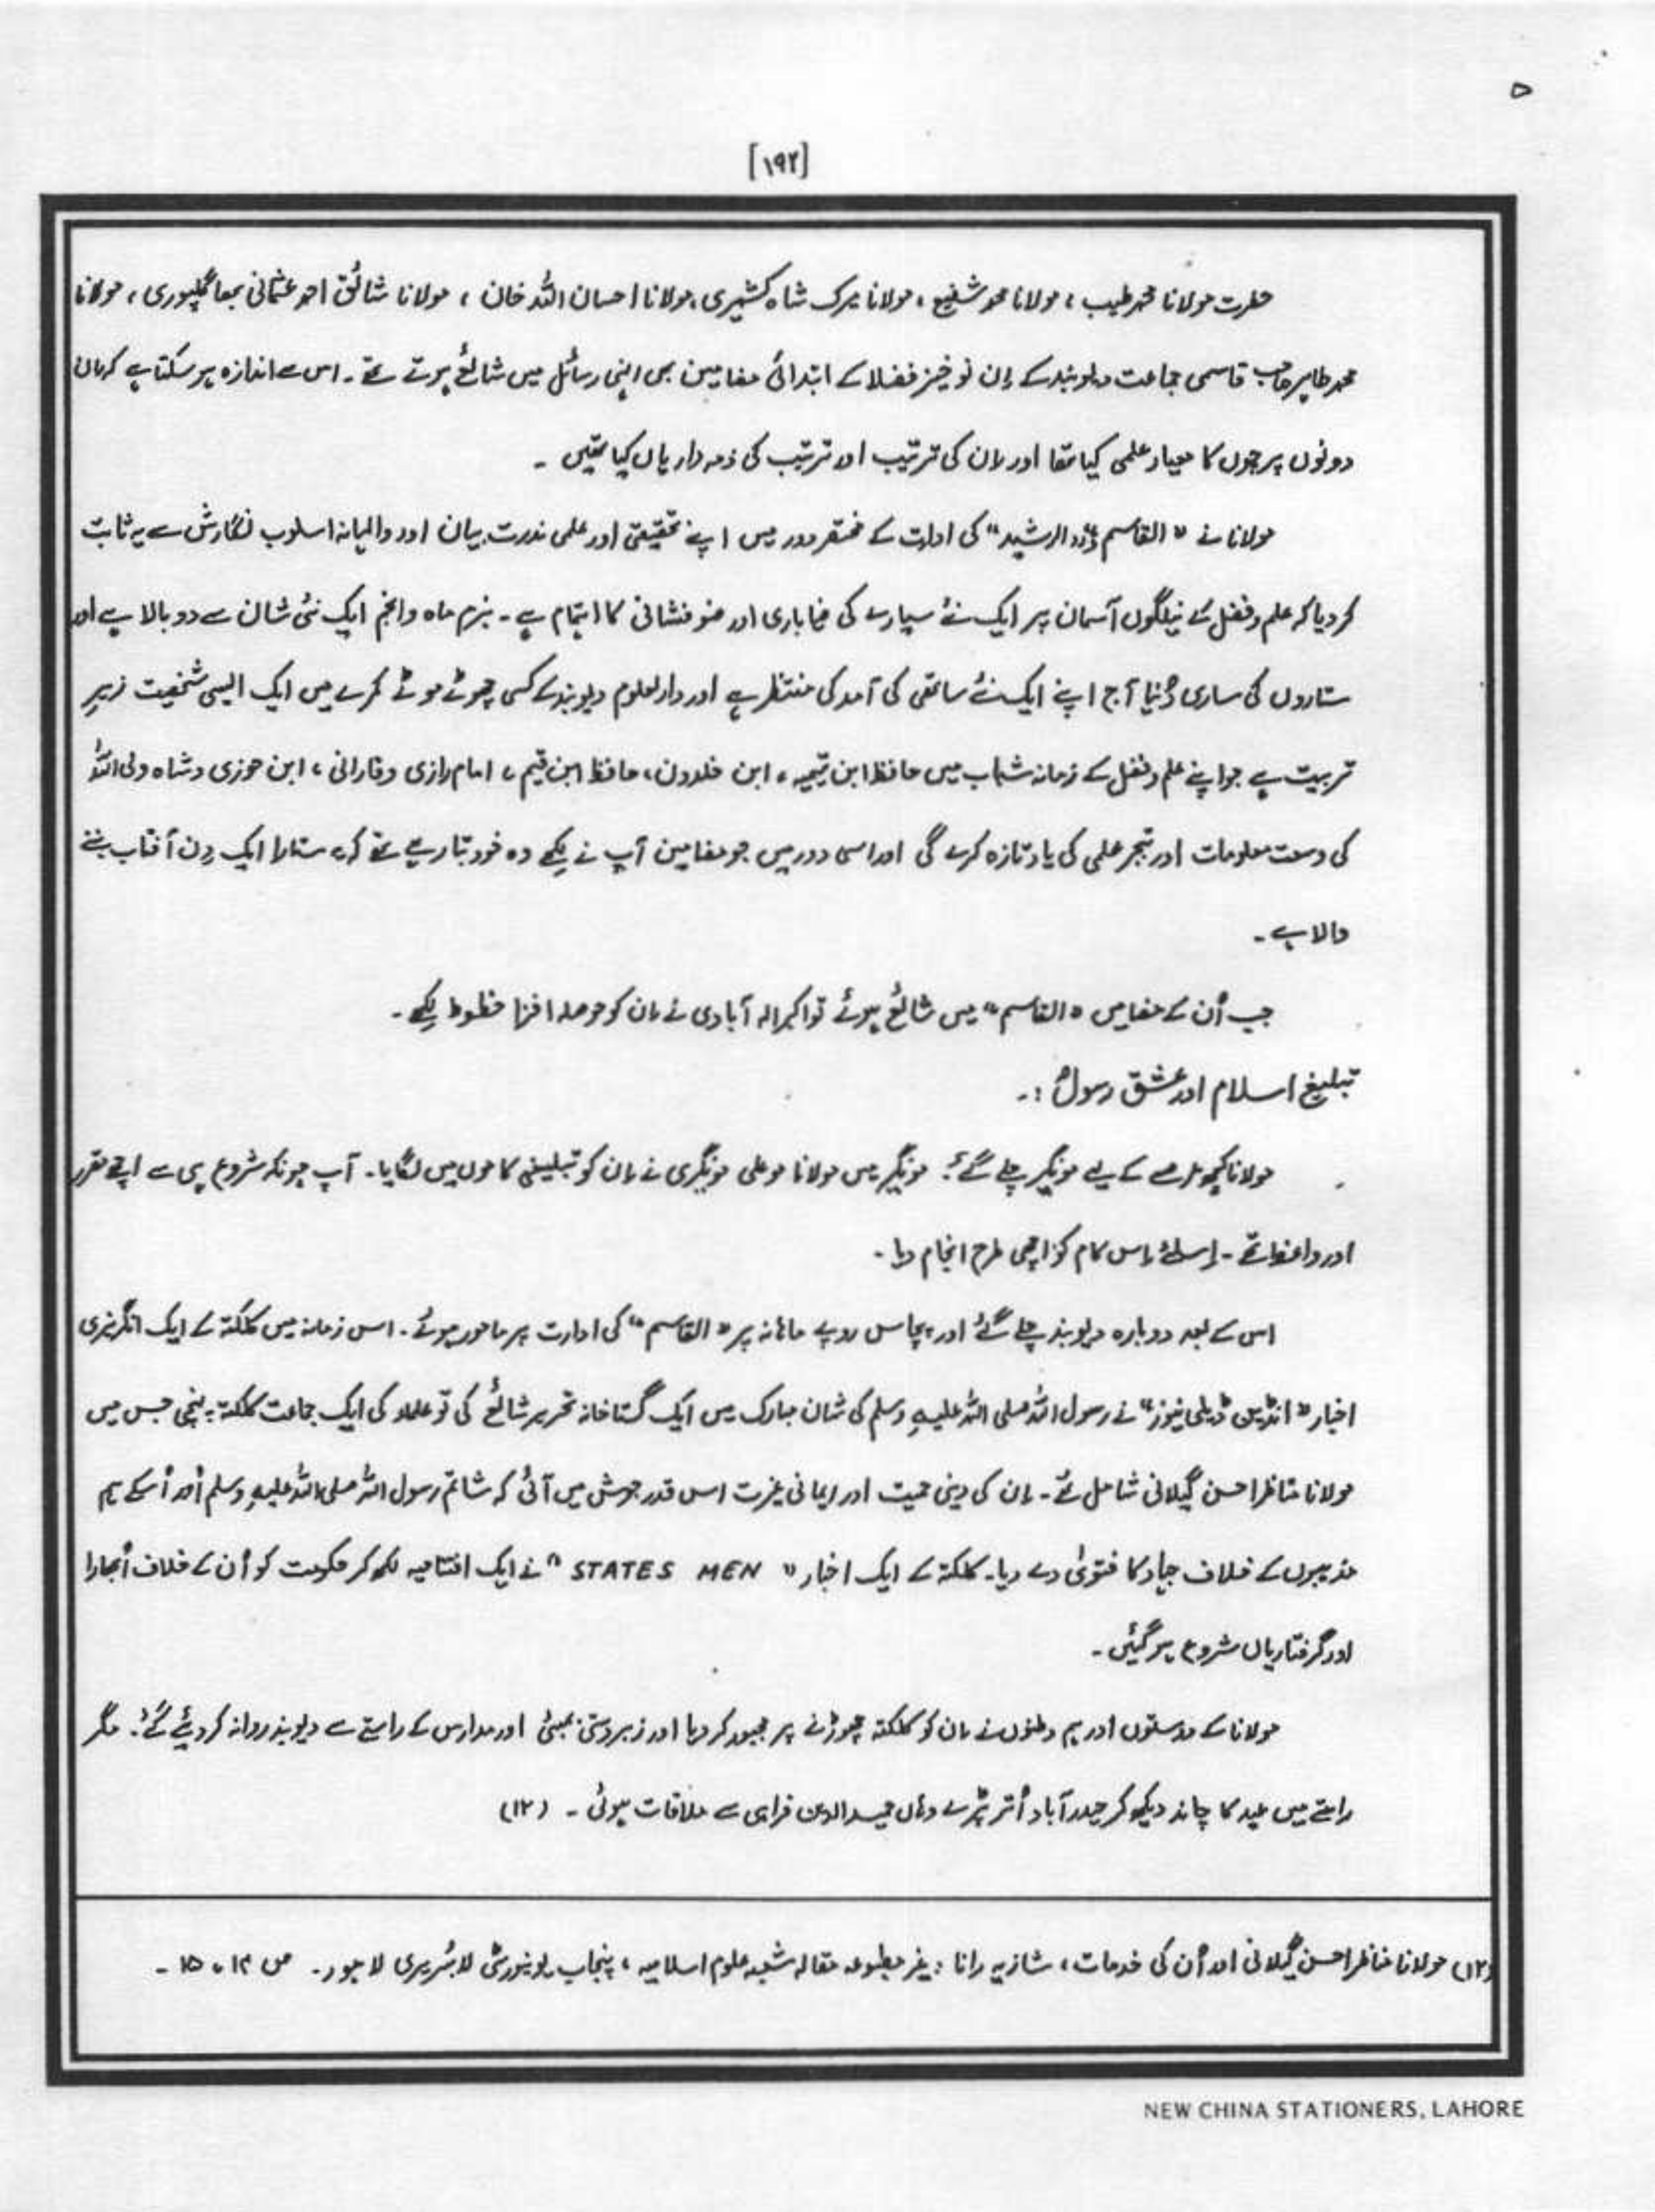 ۵
[۱۹۲]
حضرت مولانا محمد طیب ، مولانا محمد شفیع ، مولانا میرک شاہ کشمیری ، مولانا احسان اللہ خان ، مولانا شائق احمد عثمانی بھاگلپوری ، مولانا
محمد طاہر صاحب قاسمی جماعت دیوبند کے اِن نو خیز فضلا کے ابتدائی مضامین بھی انہی رسائل میں شائع ہوتے تھے ۔ اس سے اندازہ ہو سکتا ہے کہ ان
دونوں پرچوں کا معیار علمی کیا تھا اور ان کی ترتیب اور ترتیب کی ذمہ داریاں کیا تھیں ۔
مولانا نے " القاسم اور الرشید " کی ادارت کے مختصر دور میں اپنے تحقیقی اور علمی ندرت بیان اور والہانہ اسلوب نگارش سے یہ ثابت
کر دیا کہ علم و فضل کے نیلگوں آسمان پر ایک نئے سیارے کی ضیاباری اور ضوفشانی کا اہتمام ہے ۔ بزم ماہ و انجم ایک نئی شان سے دو بالا ہے اور
ستاروں کی ساری دُنیا آج اپنے ایک نئے ساتھی کی آمد کی منتظر ہے اور دارالعلوم دیوبند کے کسی چھوٹے موٹے کمرے میں ایک ایسی شخصیت زیرِ
تربیت ہے جو اپنے علم و فضل کے زمانہ شباب میں حافظ ابن تیمیہ ، ابن خلدون ، حافظ ابن قیم ، امام رازی و فارانی ، ابن جوزی و شاہ ولی اللہؒ
کی وسعت معلومات اور تبحر علمی کی یاد تازہ کرے گی اور اسی دور میں جو مضامین آپ نے لکھے وہ خود بتا رہے تھے کہ یہ ستارا ایک دِن آفتاب بننے
والا ہے ۔
جب اُن کے مضامین " القاسم " میں شائع ہوئے تو اکبر الہ آبادی نے ان کو حوصلہ افزا خطوط لِکھے ۔
تبلیغ اسلام اور عشق رسولؐ :۔
مولانا کچھ عرصے کے لیے مونگیر چلے گئے ۔ مونگیر میں مولانا محمد علی مونگیری نے ان کو تبلیغی کاموں میں لگایا ۔ آپ چونکہ شروع ہی سے اچھے مقرر
اور واعظ تھے ۔ اِسلئے اِس کام کو اچھی طرح انجام دیا ۔
اس کے بعد دوبارہ دیوبند چلے گئے اور پچاس روپے ماہانہ پر " القاسم " کی ادارت پر مامور ہوئے ۔ اس زمانہ میں کلکتہ کے ایک انگریزی
اخبار " انڈین ڈیلی نیوز " نے رسول اللہ صلی اللہ علیہِ وسلم کی شان مبارک میں ایک گستاخانہ تحریر شائع کی تو علماء کی ایک جماعت کلکتہ پہنچی جس میں
مولانا مناظر احسن گیلانی شامل تھے ۔ ان کی دینی حمیت اور ایمانی غیرت اس قدر جوش میں آئی کہ شاتم رسول اللہ صلی اللہ علیہِ وسلم اور اُسکے ہم
مذہبوں کے خلاف جہاد کا فتویٰ دے دیا ۔ کلکتہ کے ایک اخبار " STATES MEN " نے ایک افتتاحیہ لکھ کر حکومت کو اُن کے خلاف اُبھارا
اور گرفتاریاں شروع ہو گئیں ۔
مولانا کے دوستوں اور ہم وطنوں نے ان کو کلکتہ چھوڑنے پر مجبور کر دیا اور زبردستی بمبئی اور مدارس کے راستے سے دیوبند روانہ کر دیئے گئے ۔ مگر
راستے میں عید کا چاند دیکھ کر حیدر آباد اُتر پڑے وہاں حمید الدین فراہی سے ملاقات ہوئی ۔ (۱۲)
(۱۲) مولانا مناظر احسن گیلانی اور اُن کی خدمات ، شازیہ رانا ؛ غیر مطبوعہ مقالہ شعبہ علوم اسلامیہ ، پنجاب یونیورسٹی لائبریری لاہور ۔ ص ۱۴ ، ۱۵ ۔
NEW CHINA STATIONERS, LAHORE